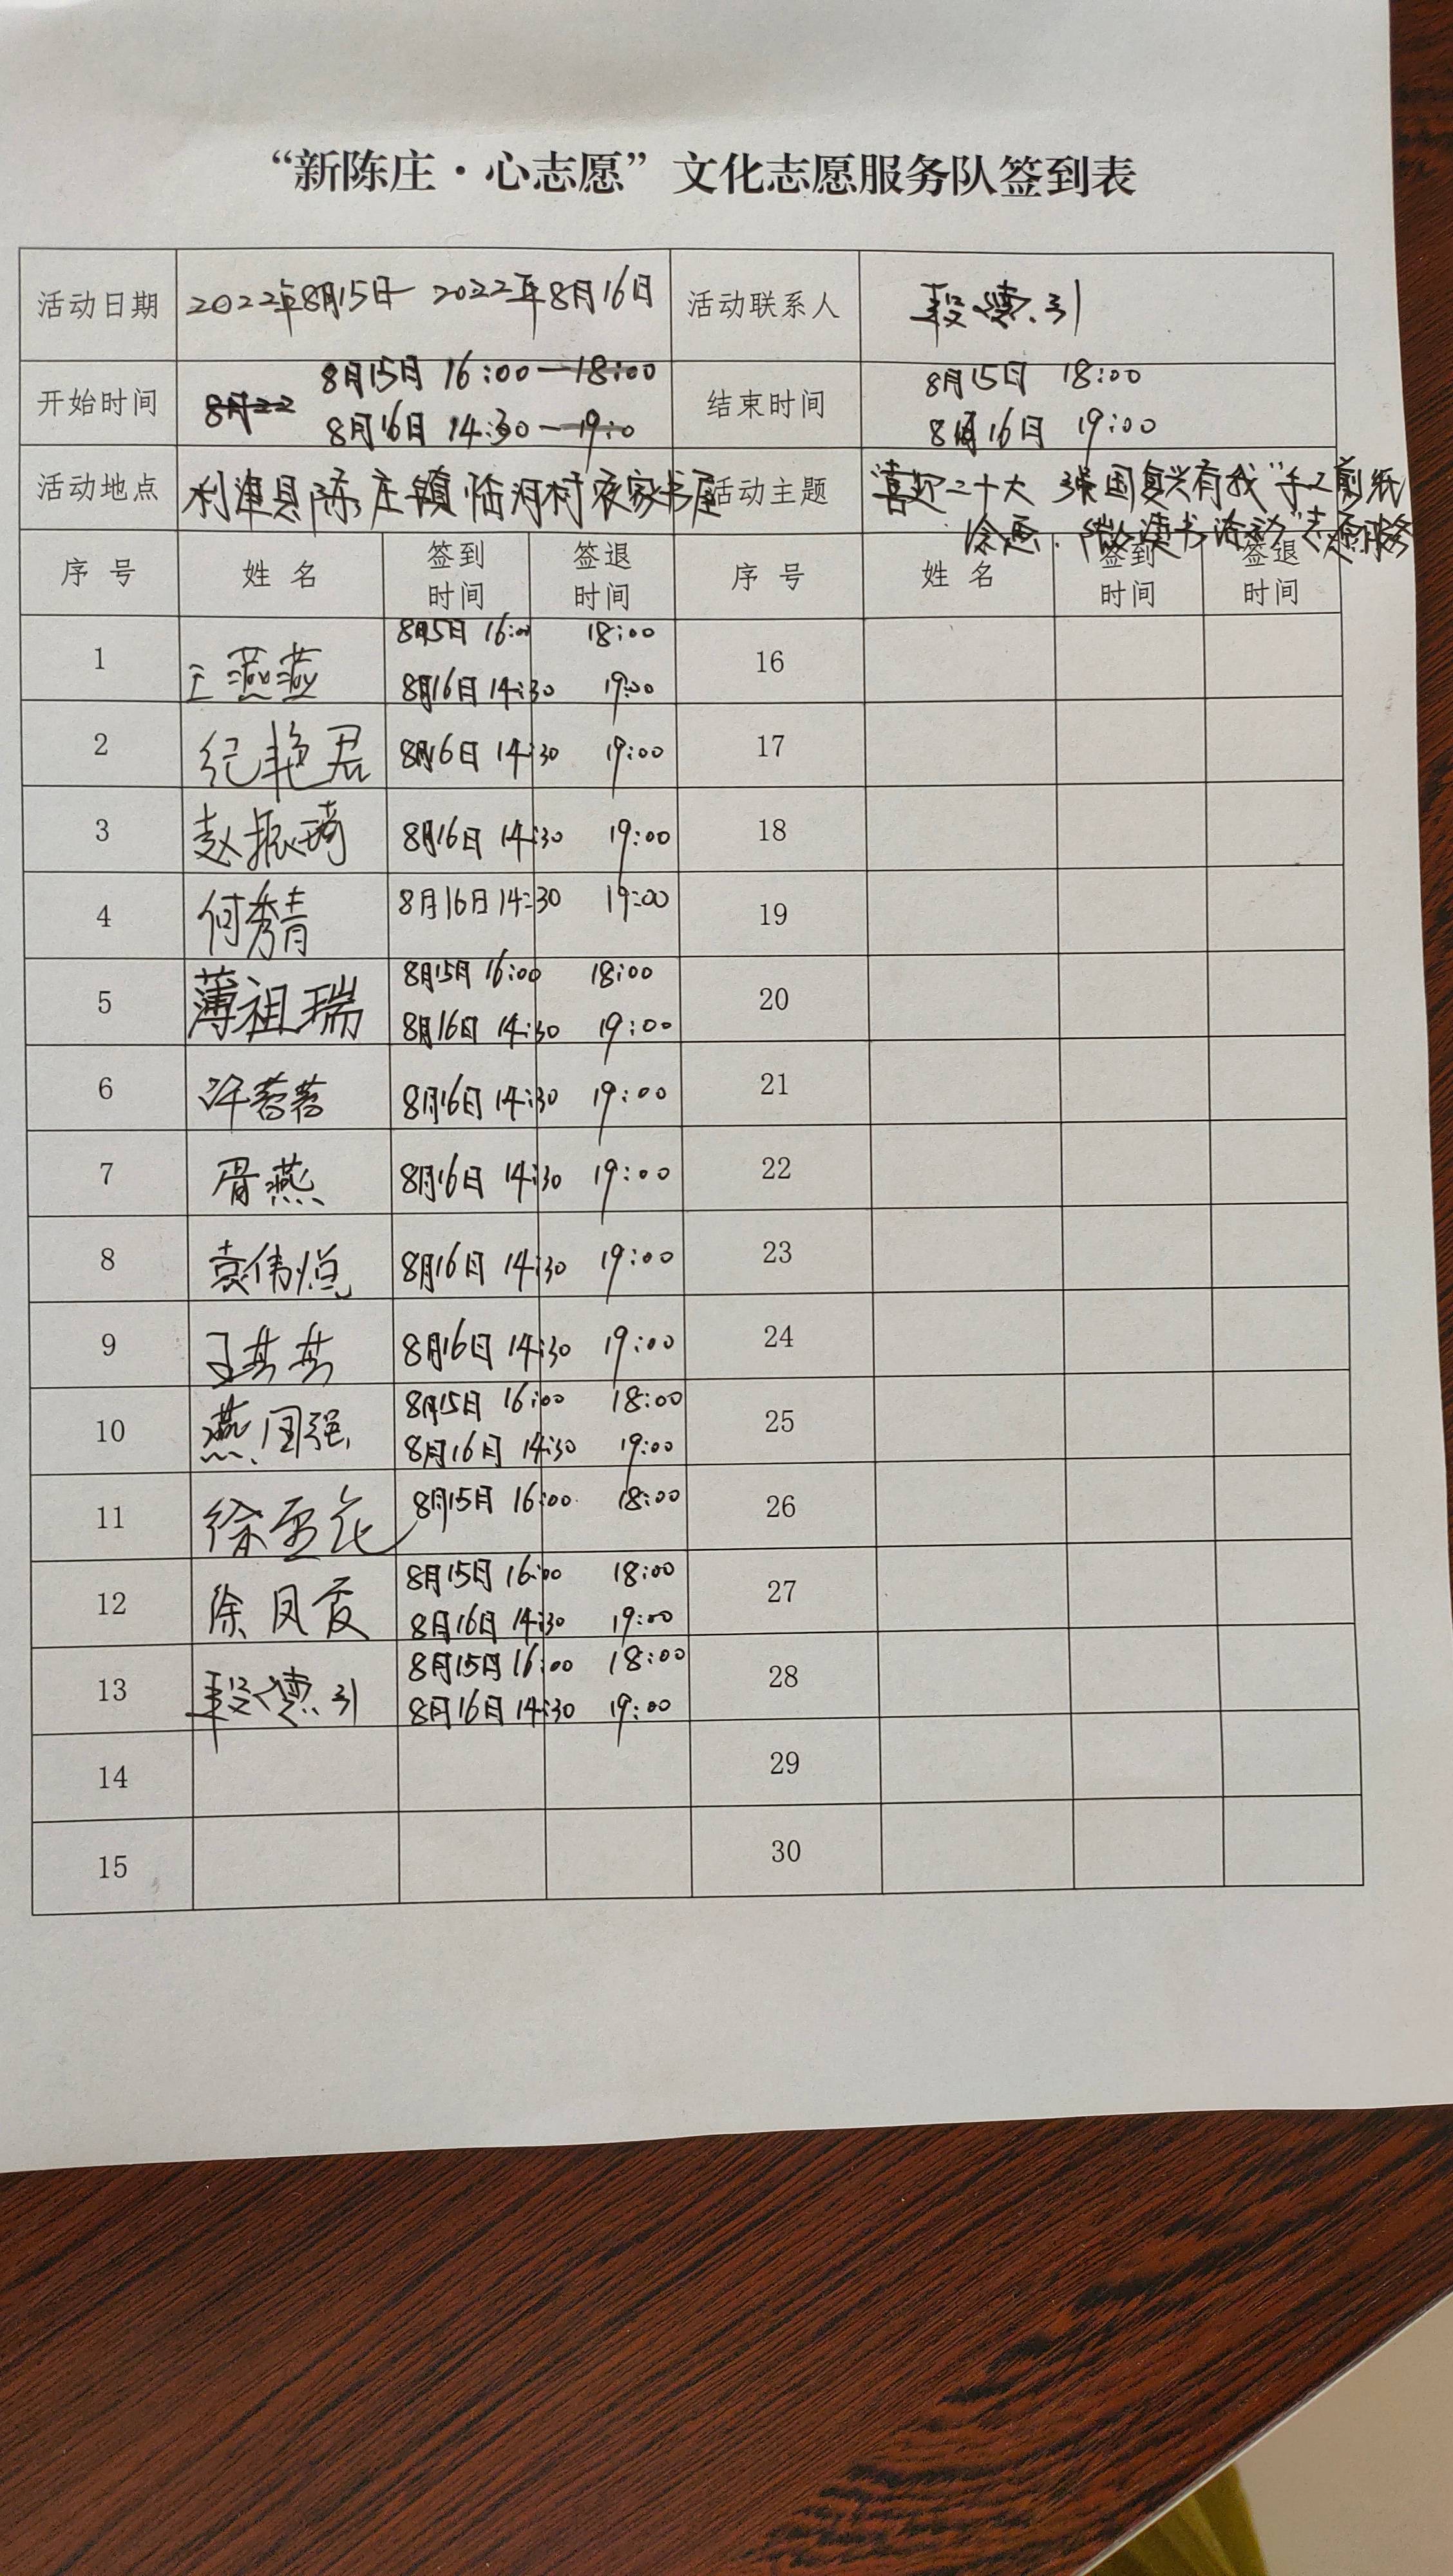 “新陈庄·心志愿”文化志愿服务队签到表
活动日期 2022年8月15日- 2022年8月16日 活动联系人 段德引
开始时间 8月22 8月15日 16:00—18:00 结束时间 8月15日 18:00
8月16日 14:30—19:0 8月16日 19:00
活动地点 利津县陈庄镇临河村农家书屋 活动主题 “喜迎二十大 强国复兴有我”手工剪纸
绘画、微读书活动”志愿服务
序 号 姓 名 签到时间 签退时间 序 号 姓 名 签到时间 签退时间
1 王燕燕 8月5日 16:00 18:00 16
8月16日 14:30 19:00
2 纪艳君 8月16日 14:30 19:00 17
3 赵振琦 8月16日 14:30 19:00 18
4 何秀青 8月16日 14:30 19:00 19
5 薄祖瑞 8月15日 16:00 18:00 20
8月16日 14:30 19:00
6 许蓉蓉 8月16日 14:30 19:00 21
7 胥燕 8月16日 14:30 19:00 22
8 袁伟悦 8月16日 14:30 19:00 23
9 王苏苏 8月16日 14:30 19:00 24
10 燕国强 8月15日 16:00 18:00 25
8月16日 14:30 19:00
11 8月15日 16:00 18:00 26
12 徐凤霞 8月15日 16:00 18:00 27
8月16日 14:30 19:00
13 段德引 8月15日 16:00 18:00 28
8月16日 14:30 19:00
14 29
15 30